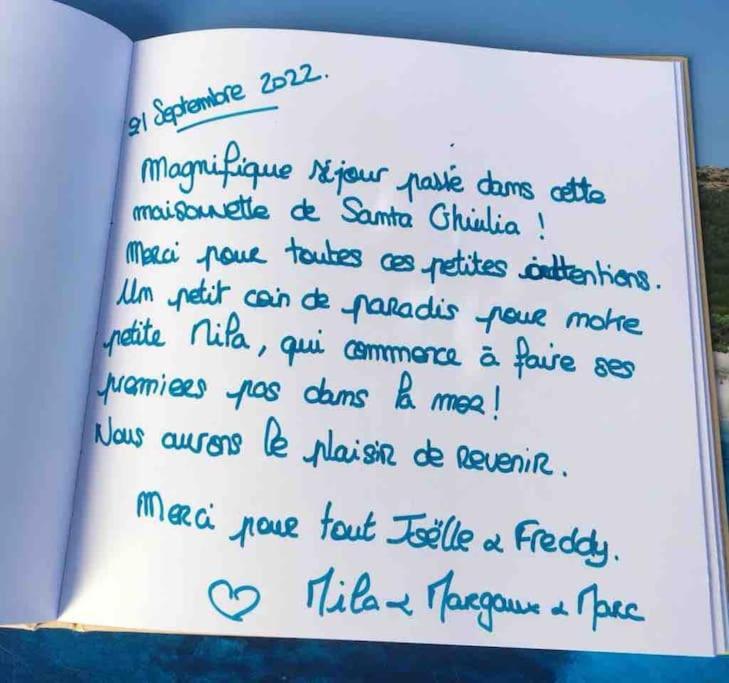 21 Septembre 2022.
Magnifique séjour passé dans cette
maisonnette de Santa Ghiulia !
Merci pour toutes ces petites attentions.
Un petit coin de paradis pour notre
petite Mila, qui commence à faire ses
premiers pas dans la mer !
Nous aurons le plaisir de revenir.
Merci pour tout Joëlle & Freddy.
♡ Mila & Margaux & Marc